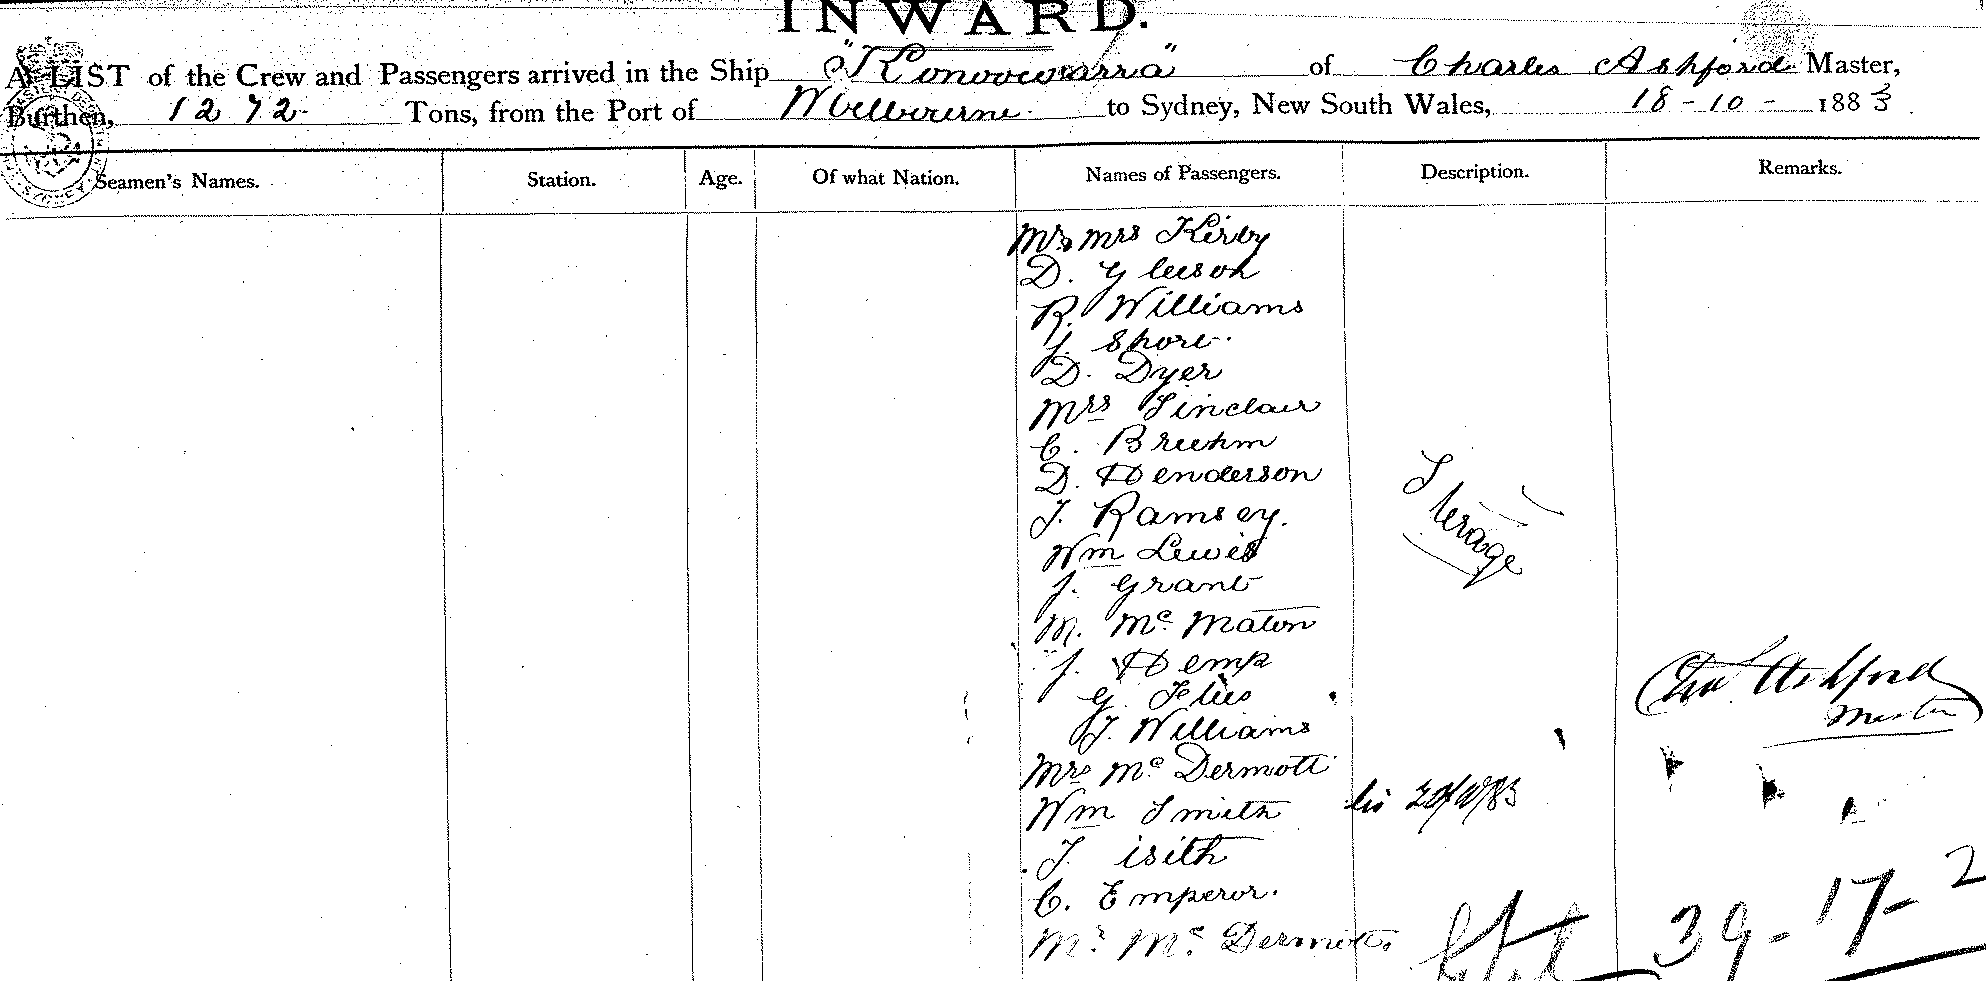 INWARD.
A LIST of the Crew and Passengers arrived in the Ship "Konoowarra" of Charles Ashford Master,
Burthen, 1272 Tons, from the Port of Melbourne to Sydney, New South Wales, 18-10-1883
Seamen's Names. Station. Age. Of what Nation. Names of Passengers. Description. Remarks.
Mr & Mrs Kirby
D. Gleeson
R. Williams
J. Shore.
D. Dyer
Mrs Sinclair
C. Breehm
D. Henderson
J. Ramsey.
Wm Lewis
Sterage
J. Grant
M. Mc Maton
J. Hemp
Chas Ashford
G.
Master
J. Williams
Mrs Mc Dermott
Wm Smith
J. isith
C. Emperor.
Mr Mc Dermott.
Total 39 - 17 - 2